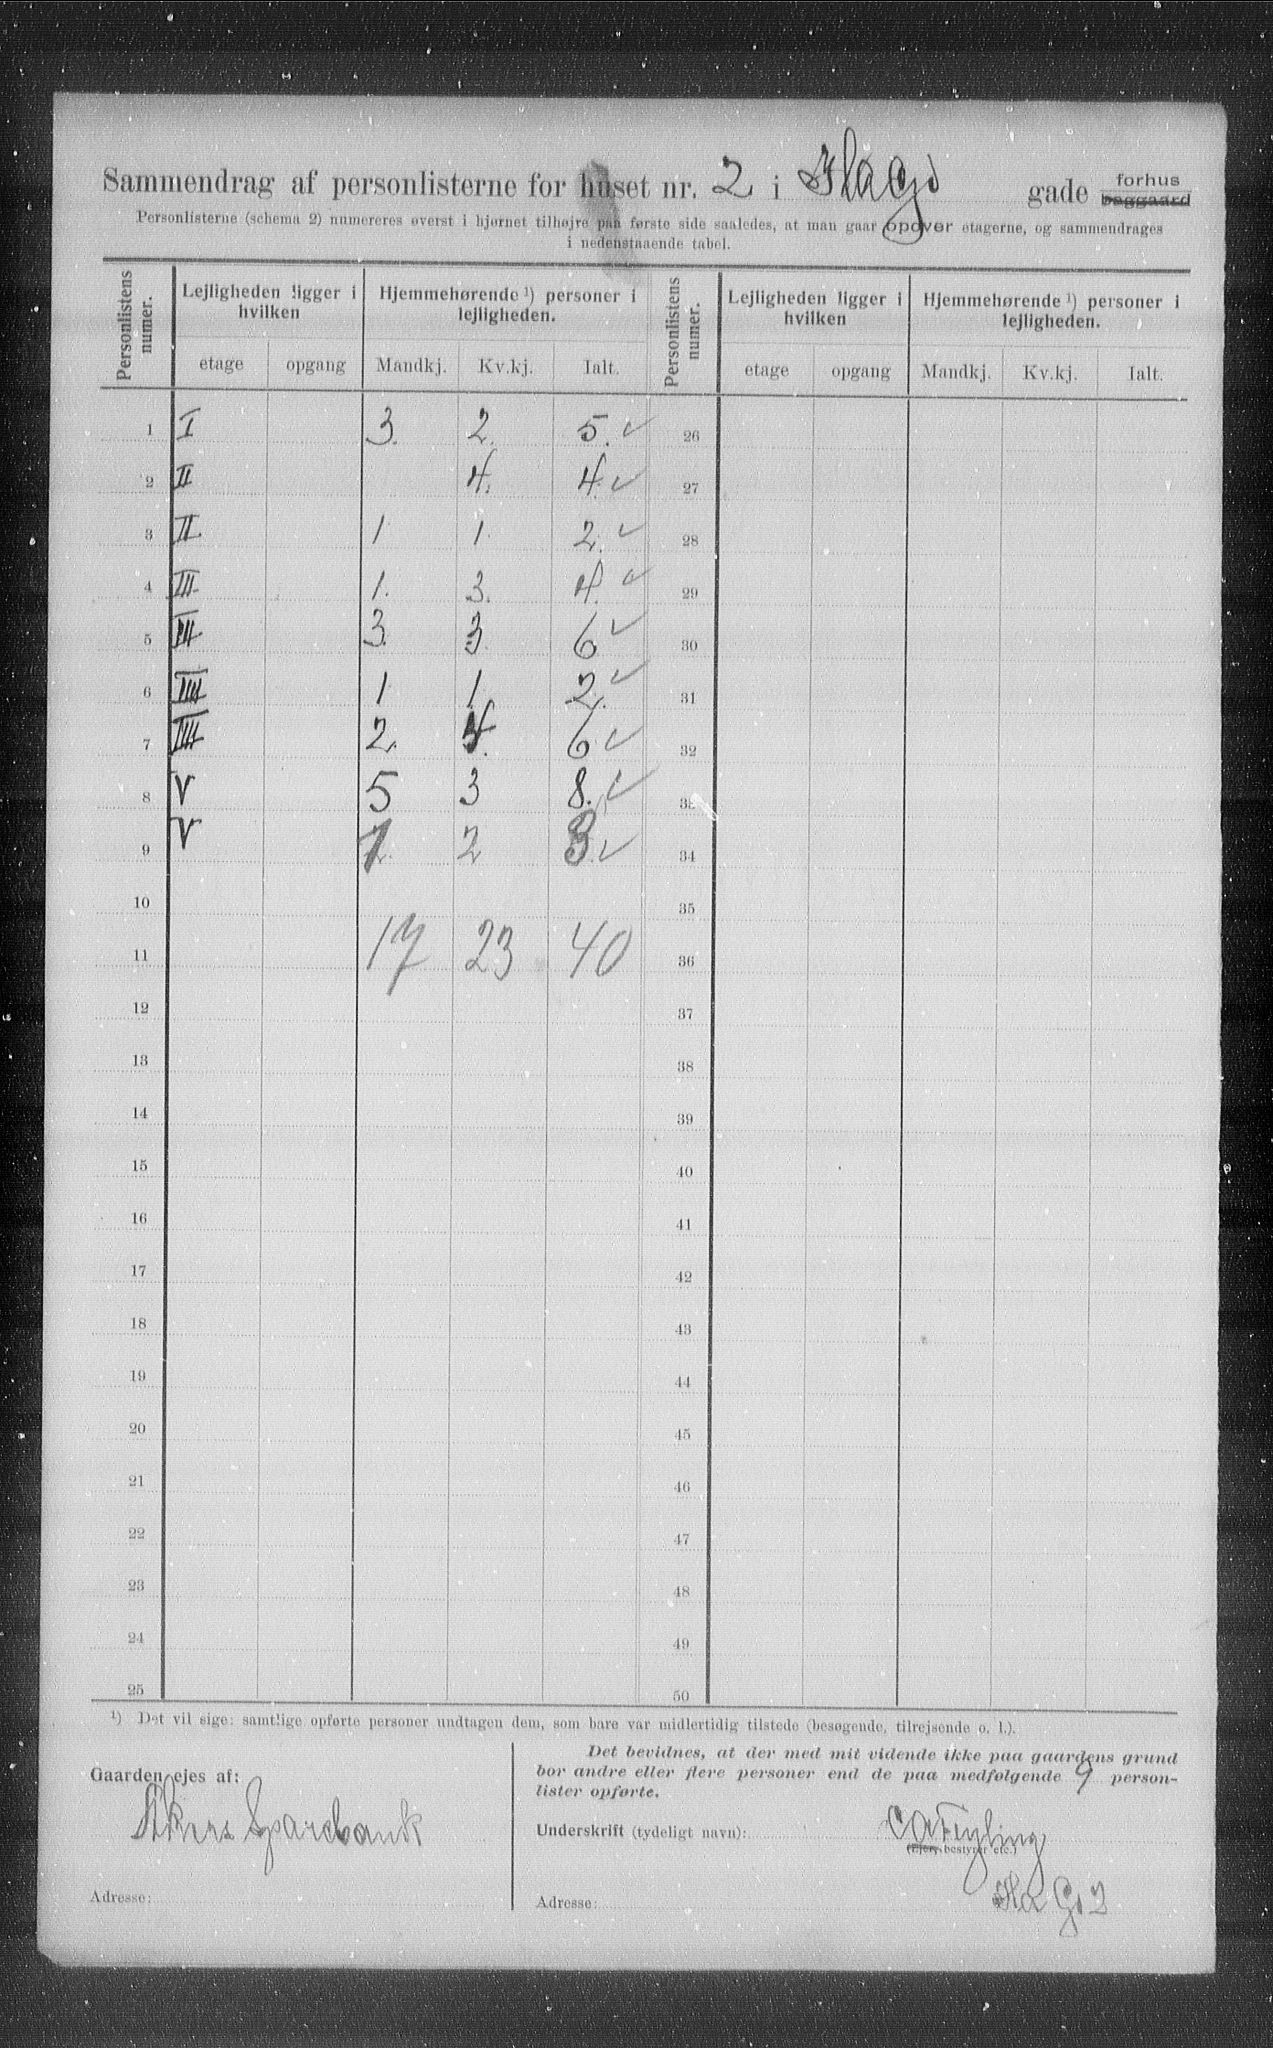 Sammendrag af personlisterne for huset nr. 2 i gade forhus baggaard
Personlisterne (schema 2) numereres øverst i hjørnet tilhøjre paa første side saaledes, at man gaar opover etagerne, og sammendrages
i nedenstaaende tabel.
Personlistens numer. Lejligheden ligger i hvilken Hjemmehørende ¹) personer i lejligheden. Personlistens numer. Lejligheden ligger i hvilken Hjemmehørende ¹) personer i lejligheden.
etage opgang Mandkj. Kv.kj. Ialt. etage opgang Mandkj. Kv.kj. Ialt.
1 I 3. 2. 5. ✓ 26
2 II 4. 4. ✓ 27
3 II 1 1 2. ✓ 28
4 III 1. 3. 4. ✓ 29
5 III 3. 3. 6 ✓ 30
6 IIII 1 1 2. ✓ 31
7 IIII 2. 4. 6 ✓ 32
8 V 5 3 8. ✓ 33
9 V 1 2 3 ✓ 34
10 35
11 17 23 40 36
12 37
13 38
14 39
15 40
16 41
17 42
18 43
19 44
20 45
21 46
22 47
23 48
24 49
25 50
¹) Det vil sige: samtlige opførte personer undtagen dem, som bare var midlertidig tilstede (besøgende, tilrejsende o. l.).
Gaarden ejes af:
Akers Sparebank
Adresse:
Det bevidnes, at der med mit vidende ikke paa gaardens grund
bor andre eller flere personer end de paa medfølgende 9 person-
lister opførte.
Underskrift (tydeligt navn):
(Ejer, bestyrer etc.)
Adresse: